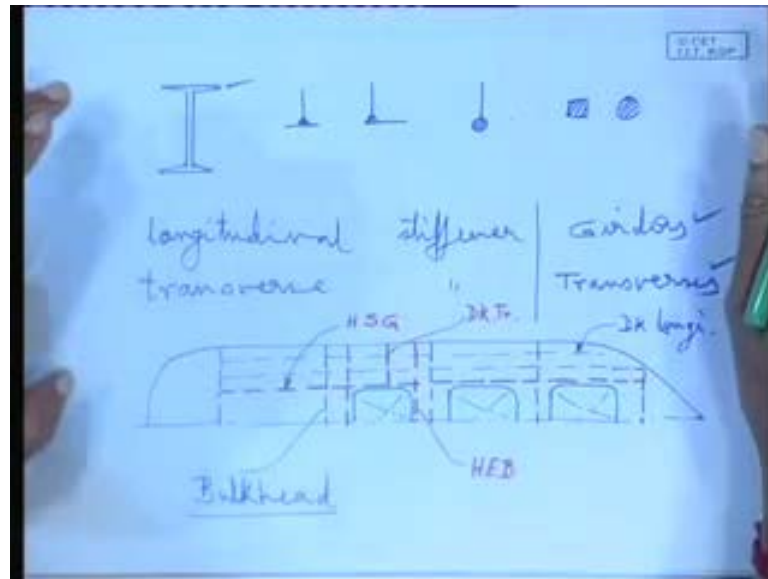 I.I.T. KGP
longitudinal stiffener Girders
transverse " Transverses
HSG Dk Tr. Dk longi.
HEB
Bulkhead